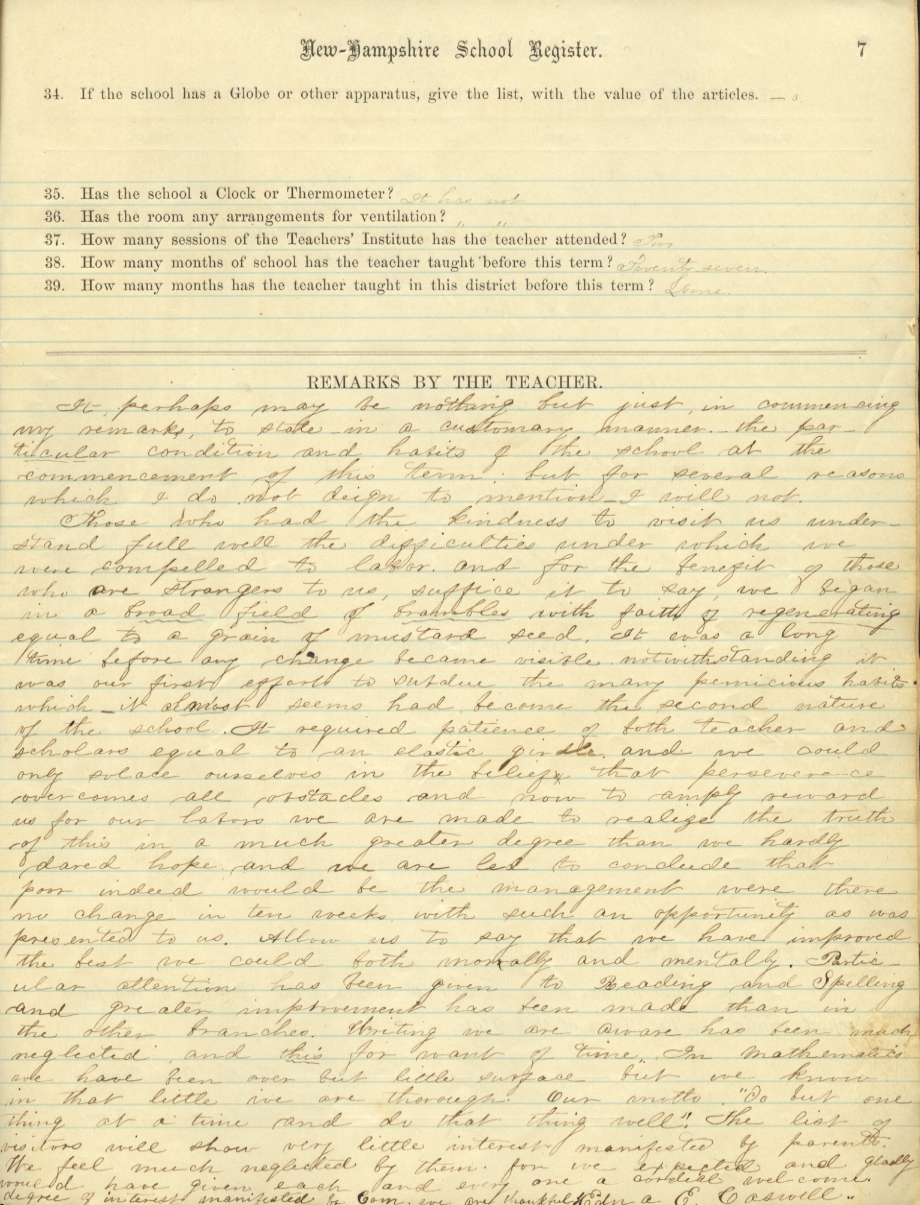 New-Hampshire School Register.
7
34. If the school has a Globe or other apparatus, give the list, with the value of the articles. — o
35. Has the school a Clock or Thermometer? It has not
36. Has the room any arrangements for ventilation? " "
37. How many sessions of the Teachers' Institute has the teacher attended? Two
38. How many months of school has the teacher taught before this term? Twenty seven.
39. How many months has the teacher taught in this district before this term? None.
REMARKS BY THE TEACHER.
It perhaps may be nothing but just, in commencing
my remarks, to state in a customary manner the par-
ticular condition and habits of the school at the
commencement of this term. but for several reasons
which I do not deign to mention – I will not.
Those who had the kindness to visit us under-
stand full well the difficulties under which we
were compelled to labor. and for the benefit of those
who are strangers to us, suffice it to say, we began
in a broad field of brambles with faith of regenerating
equal to a grain of mustard seed. It was a long
time before any change became visible notwithstanding it
was our first effort to subdue the many pernicious habits
which – it almost seems had become the second nature
of the school. It required patience of both teacher and
scholars equal to an elastic girdle and we could
only solace ourselves in the belief that perseverance
overcomes all obstacles and now to amply reward
us for our labors we are made to realize the truth
of this in a much greater degree than we hardly
dared hope and we are led to conclude that
poor indeed would be the management were there
no change in ten weeks with such an opportunity as was
presented to us. Allow us to say that we have improved
the best we could both morally and mentally. Partic-
ular attention has been given to Reading and Spelling
and greater improvement has been made than in
the other branches. Writing we are aware has been much
neglected and this for want of time. In Mathematics
we have been over but little surface but we know
in that little we are thorough. Our motto "Do but one
thing at a time and do that thing well". The list of
visitors will show very little interest manifested by parents.
We feel much neglected by them. for we expected and gladly
would have given each and every one a cordial welcome.
degree of interest manifested by Com. we are thankful. Edna E. Caswell.